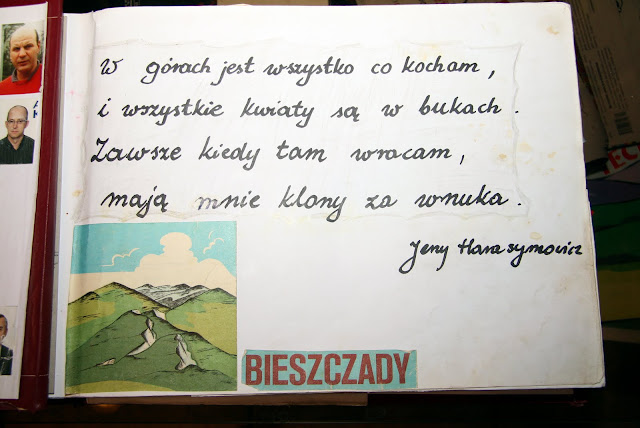 W górach jest wszystko co kocham,
i wszystkie kwiaty są w bukach.
Zawsze kiedy tam wracam,
mają mnie klony za wnuka.
Jerzy Harasymowicz
BIESZCZADY